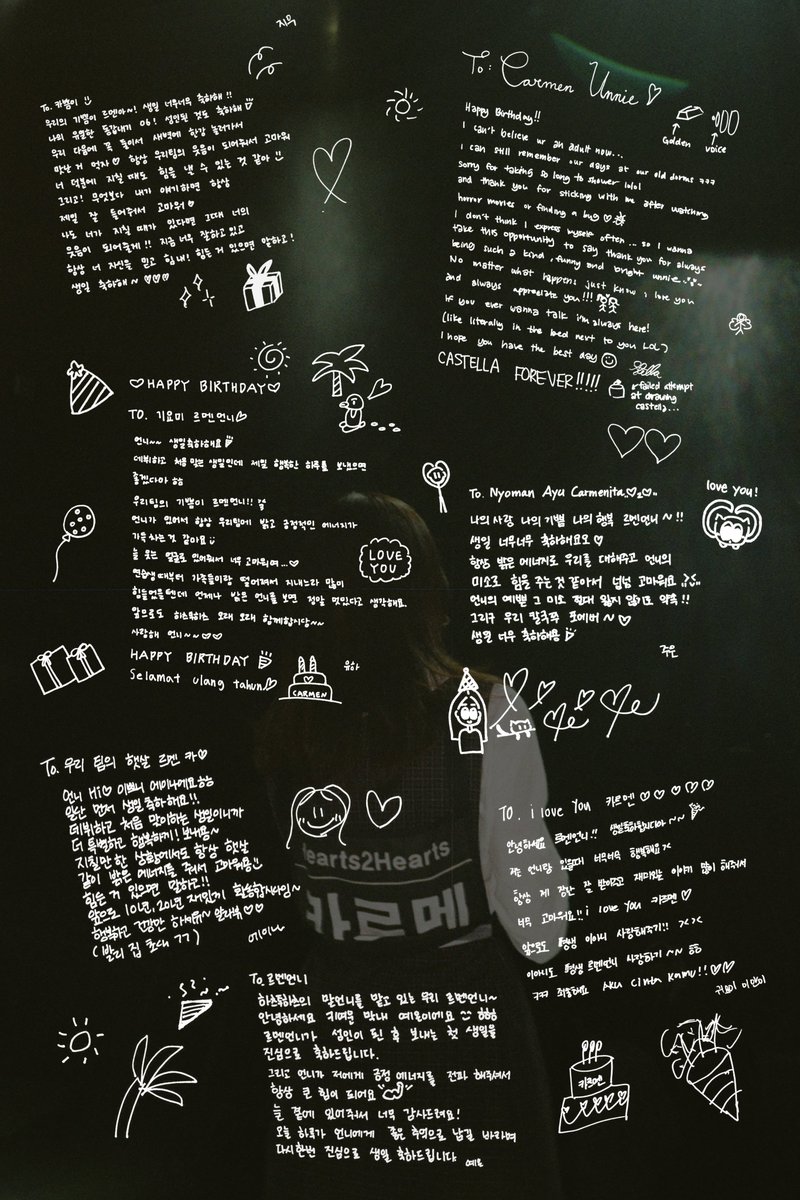 지우
To. 카멤이
우리의 기쁨이 르멘아~! 생일 너무너무 축하해!!
나의 유일한 동갑내기 06! 성인된 것도 축하해
우리 다음에 꼭 둘이서 새벽에 한강 놀러가서
맛난 거 먹자♡ 항상 우리팀의 웃음이 되어줘서 고마워
너 덕분에 지칠 때도 힘을 낼 수 있는 것 같아
그리고! 무엇보다 내가 얘기하면 항상
제일 잘 들어줘서 고마워♡
나도 너가 지칠 때가 있다면 그때 너의
웃음이 되어줄게!! 지금 너무 잘하고 있고
항상 너 자신을 믿고 힘내! 힘든 거 있으면 말하고!
생일 축하해~ ♡♡♡
To: Carmen Unnie ♡
Golden voice
Happy Birthday!!
I can't believe ur an adult now...
I can still remember our days at our old dorms ㅋㅋㅋ
Sorry for taking so long to shower lolol
and thank you for sticking with me after watching
horror movies or finding a bug ♡
I don't think I express myself often... so I wanna
take this opportunity to say thank you for always
being such a kind, funny and bright unnie..
No matter what happens just know i love you
and always appreciate you!!!
If you ever wanna talk i'm always here!
(like literally in the bed next to you LOL)
I hope you have the best day
CASTELLA FOREVER!!!!!
failed attempt
at drawing
castella...
♡HAPPY BIRTHDAY♡
TO. 기요미 르멘언니♡
언니~~ 생일축하해요
데뷔하고 처음 맞는 생일인데 제일 행복한 하루를 보냈으면
좋겠다아 ㅎㅎ
우리팀의 기쁨이 르멘언니!!
언니가 있어서 항상 우리팀에 밝고 긍정적인 에너지가
가득차는 것 같아요
늘 웃는 얼굴로 있어줘서 너무 고마워여...♡
연습생때부터 가족들이랑 떨어져서 지내느라 많이
힘들었을텐데 언제나 밝은 언니를 보면 정말 멋있다고 생각해요.
앞으로도 하츠투하츠 오래 오래 함께합시당~
사랑해 언니~~♡♡
HAPPY BIRTHDAY
Selamat ulang tahun♡
유하
LOVE
YOU
CARMEN
To. Nyoman Ayu Carmenita
love you!
나의 사랑 나의 기쁨 나의 행복 르멘언니~!!
생일 너무너무 축하해요오♡
항상 밝은 에너지로 우리를 대해주고 언니의
미소로 힘을 주는 것 같아서 넘넘 고마워요
언니의 예쁜 그 미소 절대 잃지 않기로 약속!!
그리구 우리 말국주 포에버~♡
생일 너무 축하해용
주은
To. 우리 팀의 햇살 르멘 카♡
언니 Hi♡ 이쁘니 에이나에요ㅎㅎ
일단 먼저 생일축하해요!!
데뷔하고 처음 맞이하는 생일이니까
더 특별하고 행복하기! 보내용~
지칠만한 상황에서도 항상 햇살
같이 밝은 에너지를 줘서 고마워용
힘든 거 있으면 말하고!!
앞으로 10년, 20년 재밌게 활동합시다잉~
행복하고 건강만 하세유~ 알라뷰♡♡
(발리 집 초대 ㄱㄱ)
에이나
Hearts2Hearts
카르멘
TO. i love You 카르멘 ♡♡♡♡♡
안녕하세요 르멘언니!! 생일축하합니다아~~
저는 언니랑 있을때 너무너무 행복해요
항상 제 장난 잘 받아주고 재미있는 이야기 많이 해줘서
너무 고마워요!! i love you 카르멘 ♡
앞으로도 평생 이안이 사랑해주기!! ><
이안이도 평생 르멘언니 사랑하기~~
ㅋㅋ 죄송해요 Aku Cinta Kamu!!♡♡
귀요미 이안이
To 르멘언니
하츠투하츠의 맏언니를 맡고 있는 우리 르멘언니~
안녕하세요 귀여운 막내 예온이에요 ㅎㅎㅎ
르멘언니가 성인이 된 후 보내는 첫 생일을
진심으로 축하드립니다.
그리고 언니가 저에게 긍정 에너지를 전파 해주셔서
항상 큰 힘이 되어요
늘 곁에 있어주셔서 너무 감사드려요!
오늘 하루가 언니에게 좋은 추억으로 남길 바라며
다시한번 진심으로 생일 축하드립니다
예온
카르멘